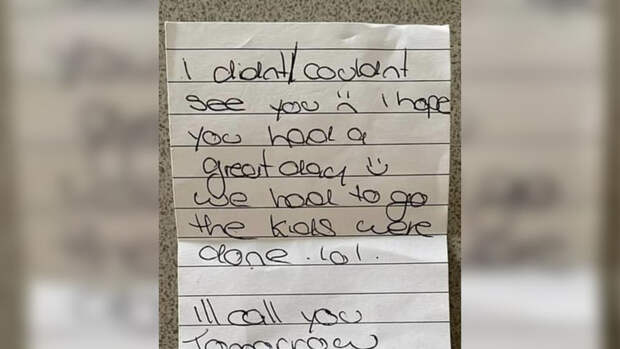 I didnt/couldnt
see you :( I hope
you had a
great day :)
we had to go
the kids were
done. lol.
Ill call you
Tomorrow